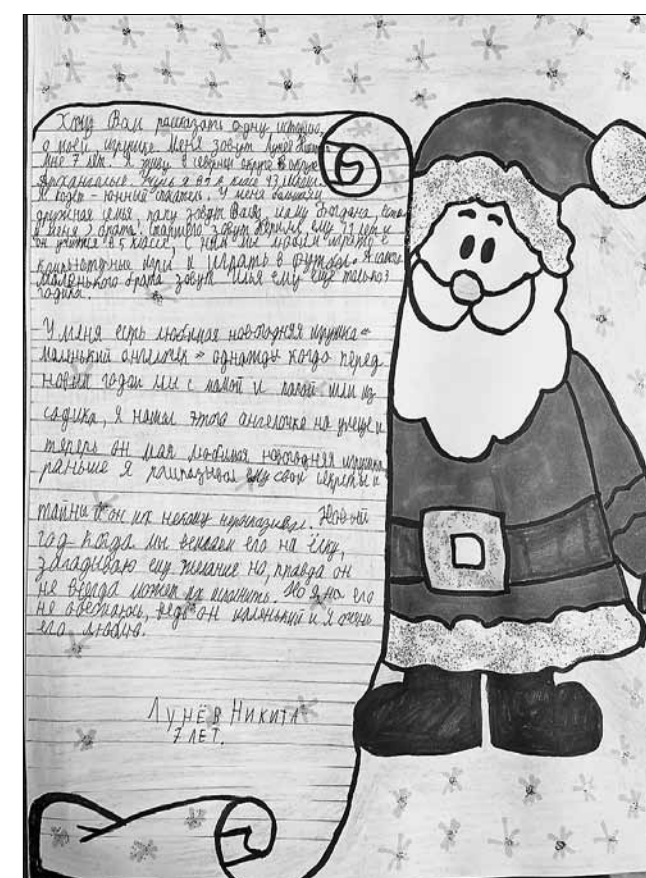 Хочу Вам рассказать одну историю,
о моей игрушке. Меня зовут Лунёв Никита
мне 7 лет. Я живу в округе
Учусь я в классе
Я
дружная семья, папу зовут маму Богдана,
у меня 2 брата. зовут ему 11 лет и
он учится в 5 классе, с ним мы любим играть в
компьютерные игры и играть в футбол.
маленького брата зовут Илья ему ещё только 3
годика.
У меня есть любимая новогодняя игрушка «
маленький ангелочек » однажды когда перед
новым годом мы с мамой и папой шли из
садика, я нашел этого ангелочка на улице и
теперь он моя любимая новогодняя игрушка
раньше я рассказывал ему свои секреты и
тайны он их некому
год когда мы вешаем его на ёлку,
загадываю ему желание но, правда он
не всегда может их исполнить. Но я на его
не обежаюсь, ведь он маленький и я очень
его люблю.
Лунёв Никита
7 лет.